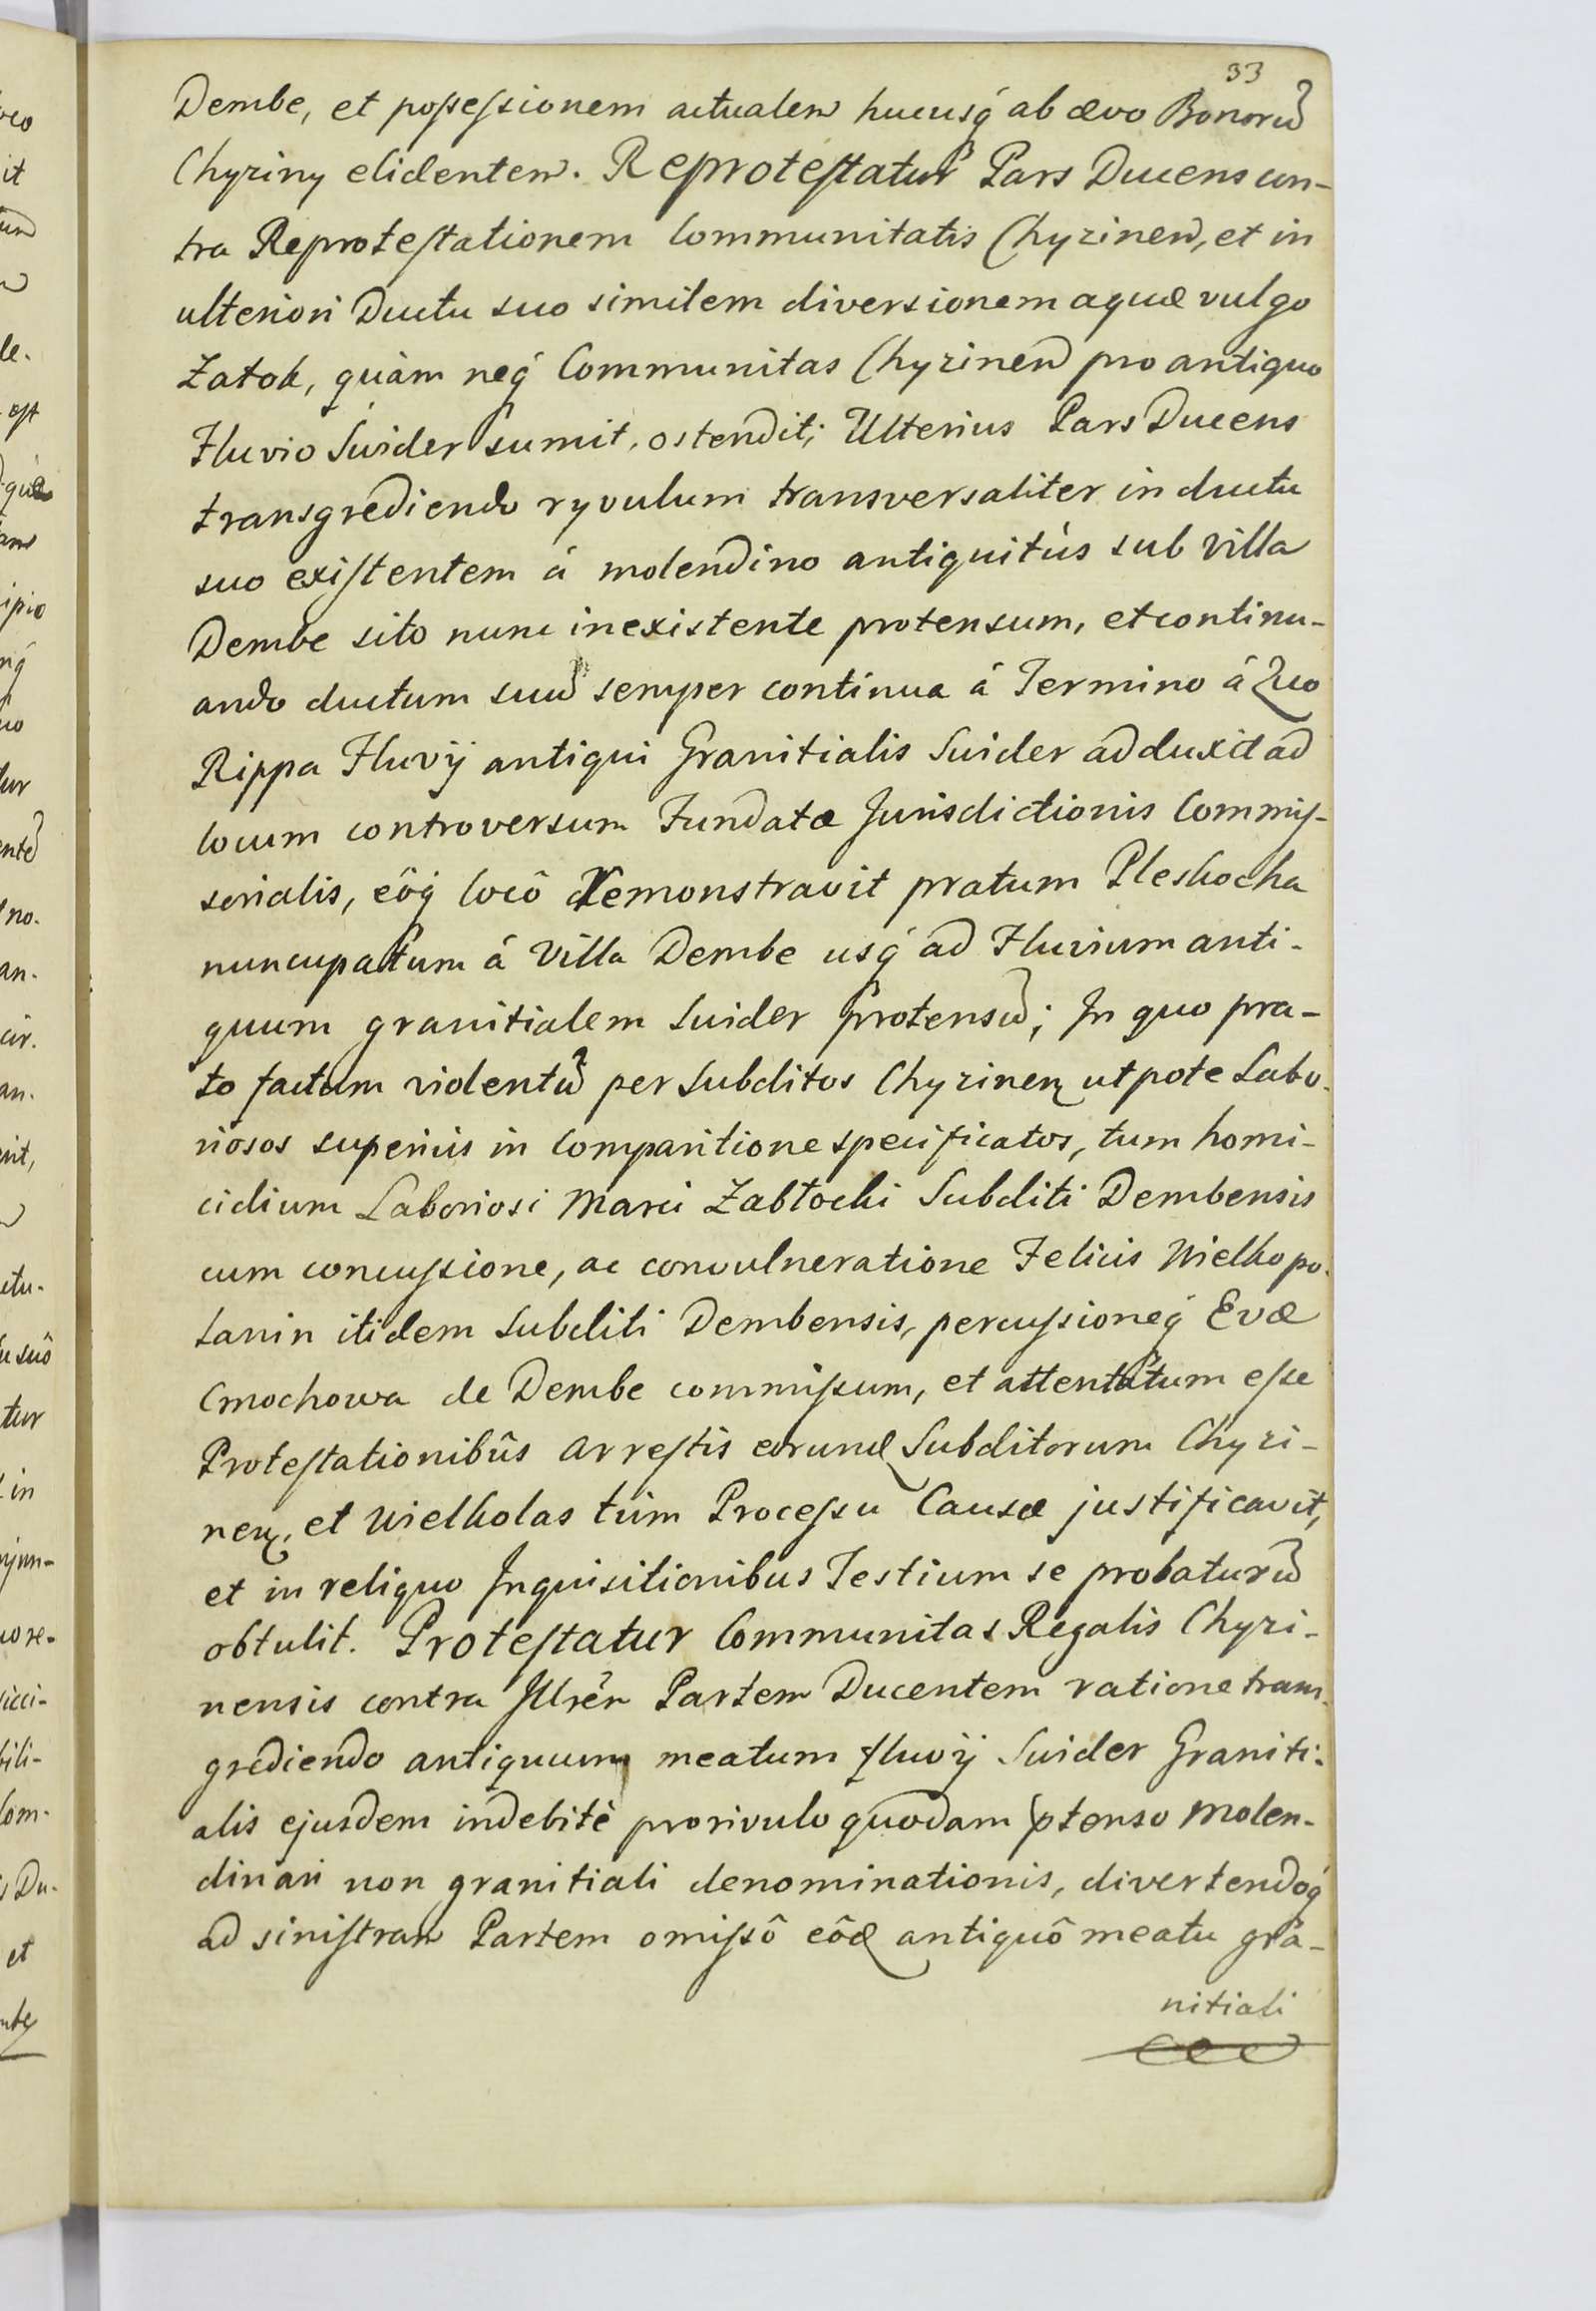 33
Dembe, et possessionem actualem hucusq́ ab ævo Bonorũ
Chyziny elidentem. Reprotestatur Pars Ducens con-
tra Reprotestationem Communitatis Chyzinen, et in
ulteriori Ductu suo similem diversionem aquæ vulgo
Zatok, quàm neq́ Communitas Chyzinen pro antiquo
Fluvio Swider sumit, ostendit; Ulterius Pars Ducens
transgrediendo ryvulum transversaliter in ductu
suo existentem á molendino antiquitùs sub Villa
Dembe sito nunc inexistente protensum, et continu-
ando ductum suũ semper continua á Termino á Quo
Rippa Fluvÿ antiqui Granitialis Suider adduxit ad
locum controversum Fundatæ Jurisdictionis Commis-
sorialis, eôq́ locô demonstravit pratum Pleskocha
nuncupatum á Villa Dembe usq́ ad Fluvium anti-
quum granitialem Suider protensũ; In quo pra-
to factam violentũ per Subditos Chyzinen utpote Labo-
riosos superius in Comparitione specificatos, tum homi-
cidium Laboriosi Marci Zabłocki Subditi Dembensis
cum concussione, ac convulneratione Felicis Wielkopo-
lanin itidem Subditi Dembensis, percussioneq́ Evæ
Cmochowa de Dembe commissum, et attentatum esse
Protestationibûs arrestis eorund Subditorum Chyzi-
nen, et Wielkolas tùm Processu Causæ justificavit,
et in reliquo Inquisitionibus Testium se probaturũ
obtulit. Protestatur Communitas Regalis Chyzi-
nensis contra Illrẽn Partem Ducentem ratione trans-
grediendo antiquum meatum fluvÿ Suider Graniti-
alis ejusdem indebitè pro rivulo quodam ptenso Molen-
dinari non granitiali denominationis, divertendoq́
ad sinistram Partem omissô eôd antiquô meatu gra-
nitiali